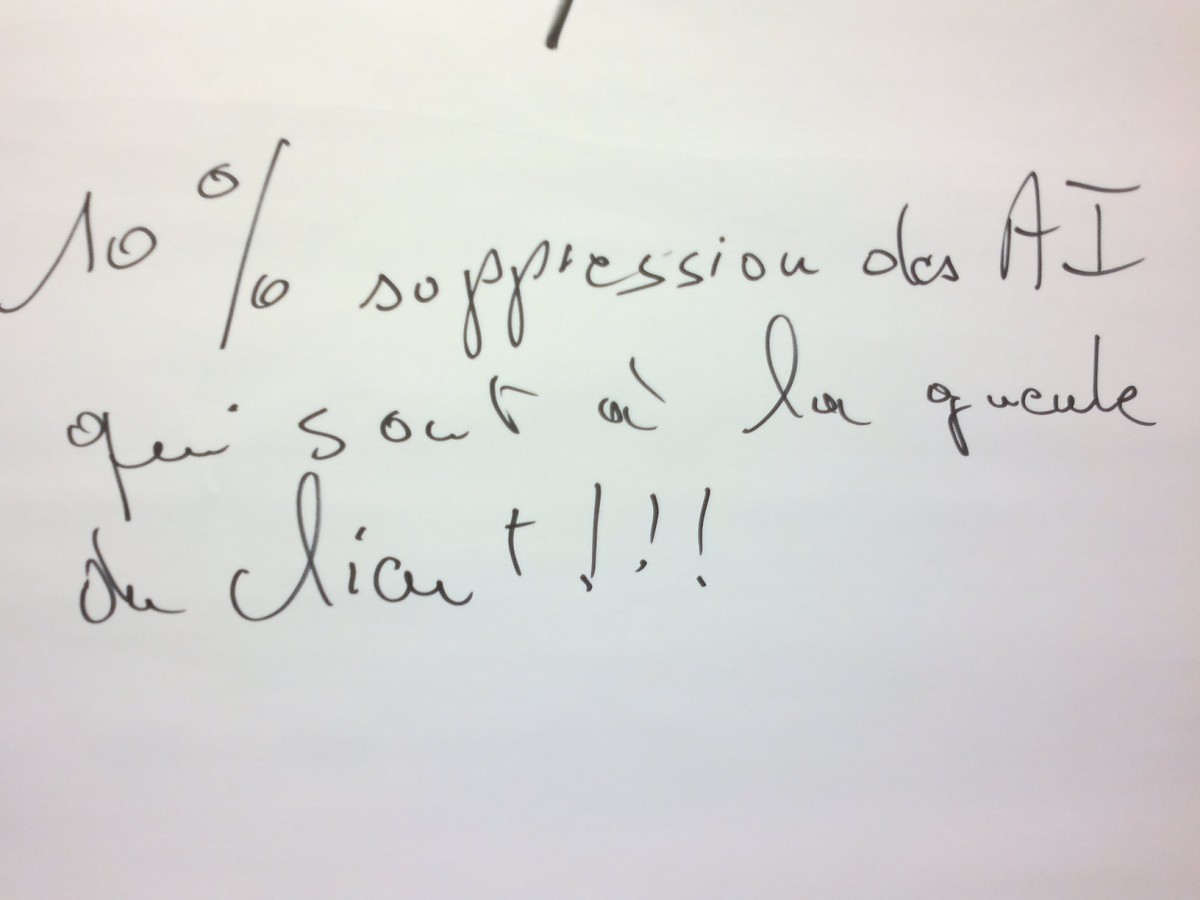 10% suppression des AI
qui sont à la gueule
du client !!!